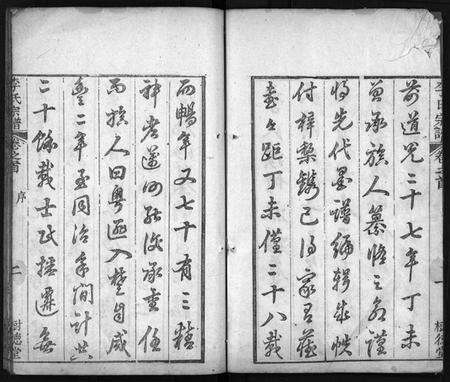 李氏宗譜 卷之首 一 樹德堂
前道光二十七年丁未
曾承族人慕修之命謹
將先代墨譜編輯成帙
付梓梨鐫已
距丁未僅二十八載
而暢年又七十有三精
神老邁
而族人因粵逆入楚自咸
豐二年至同治年間計共
二十餘載士民播遷無
李氏宗譜 卷之首 序 二 樹德堂